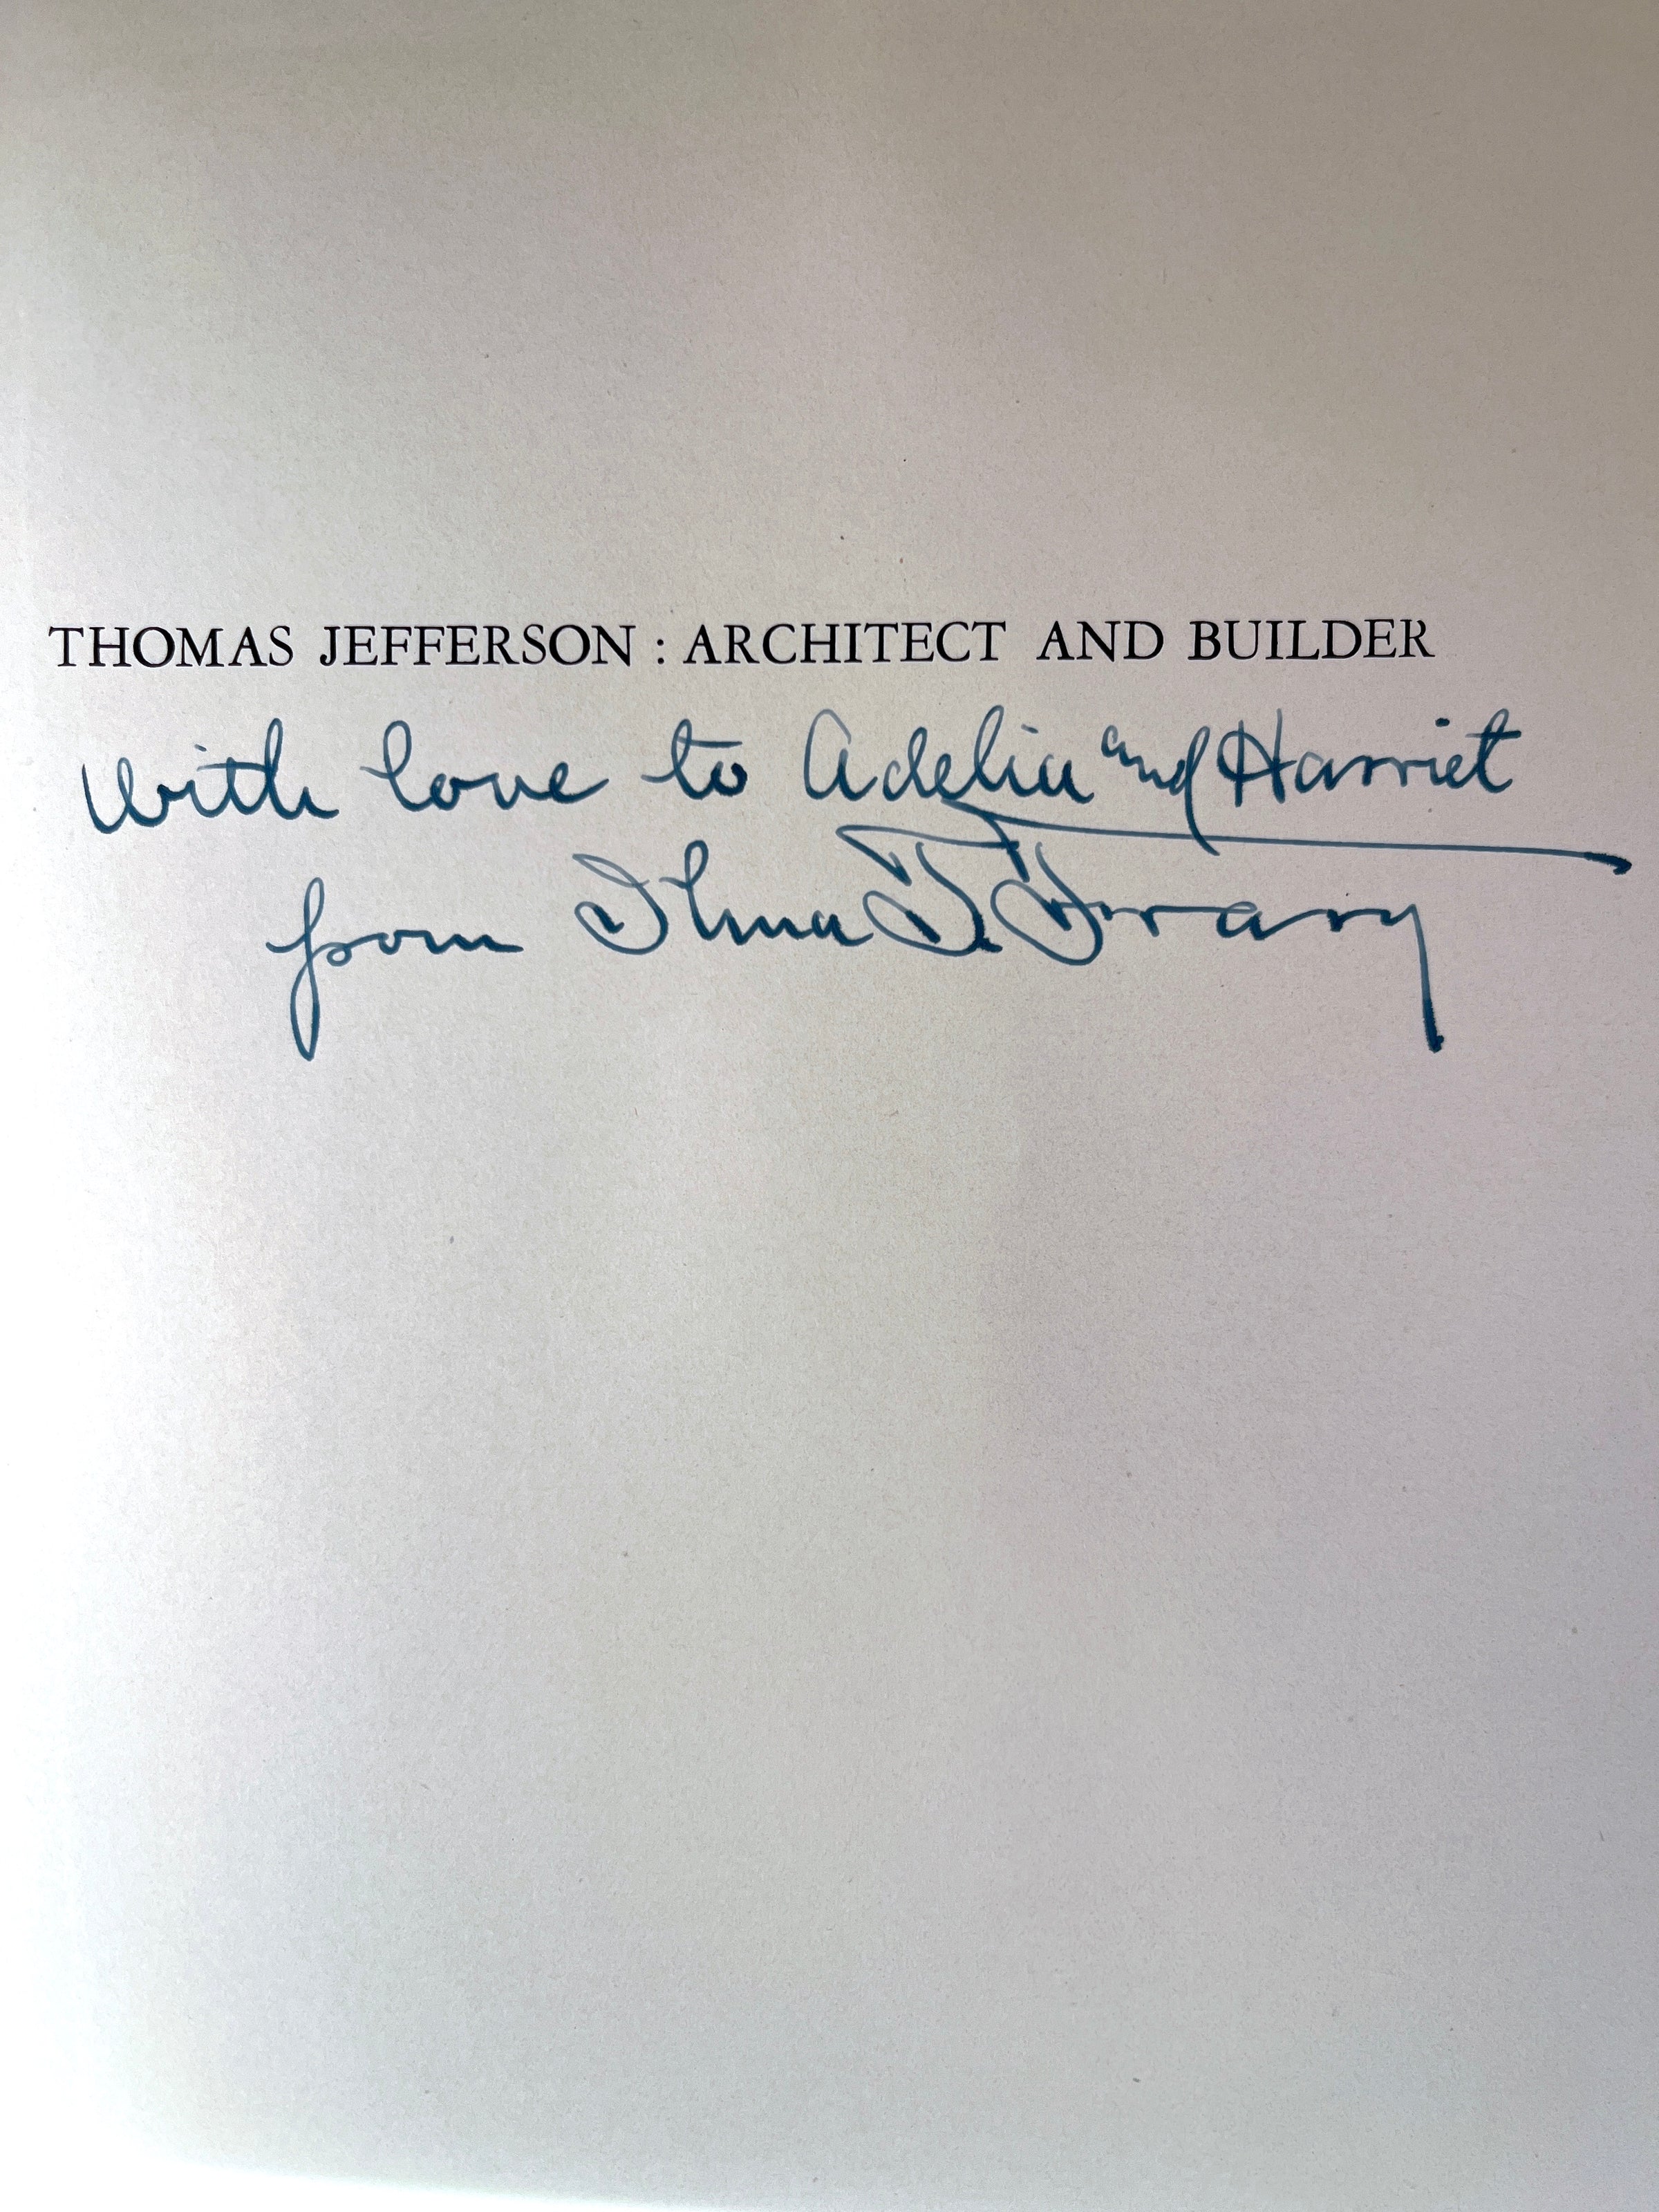 THOMAS JEFFERSON : ARCHITECT AND BUILDER
With love to Adelia and Harriet
from Ihna T. Frary